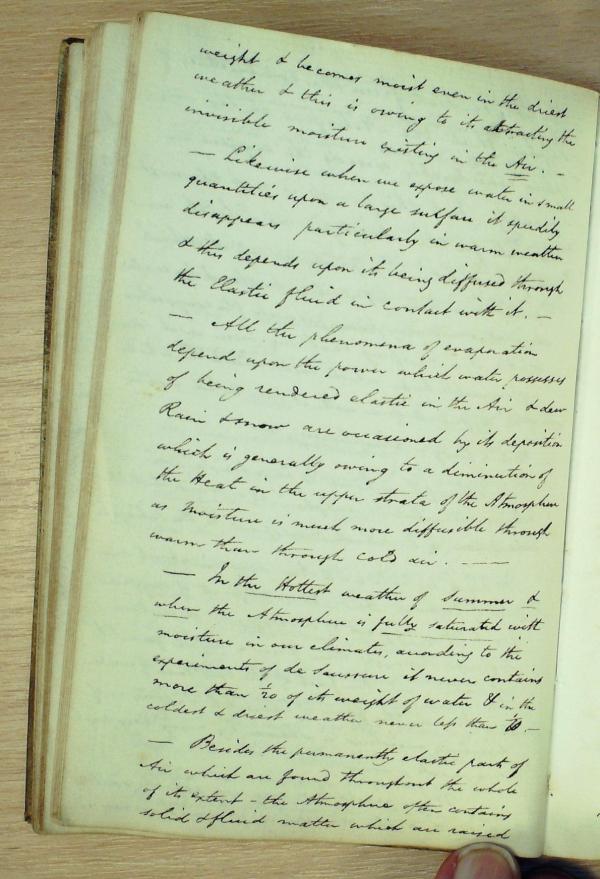 weight & becomes moist even in the driest
weather & this is owing to its abstracting the
invisible moisture existing in the Air. –
— Likewise when we expose water in small
quantities upon a large surface it speedily
disappears particularly in warm weather
& this depends upon its being diffused through
the Elastic fluid in contact with it. –
— All the phenomena of evaporation
depend upon the power which water possesses
of being rendered elastic in the Air & dew
Rain & snow are occasioned by its deposition
which is generally owing to a diminution of
the Heat in the upper strata of the Atmosphere
as Moisture is much more diffusible through
warm than through cold air. ——
— In the Hottest weather of Summer &
when the Atmosphere is fully saturated with
moisture in our climates, according to the
experiments of de Saussure it never contains
more than 1/20 of its weight of water & in the
coldest & driest weather never less than –
— Besides the permanently elastic parts of
Air which are found throughout the whole
of its extent – the Atmosphere often contains
solid & fluid matter which are raised